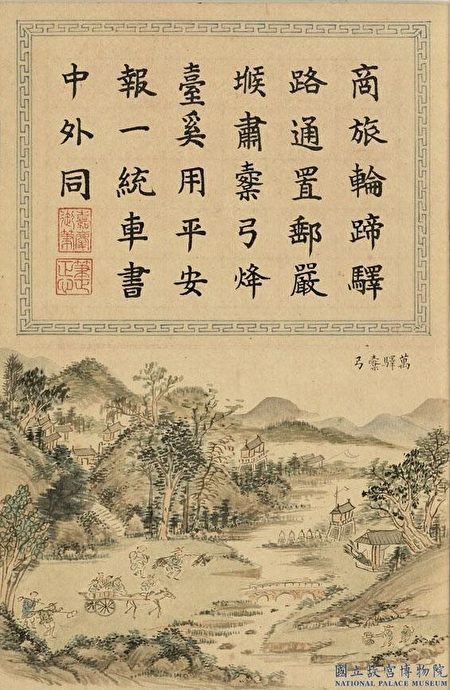 商旅輪蹄驛
路通置郵嚴
堠肅櫜弓烽
臺奚用平安
報一統車書
中外同
嘉慶御筆
萬驛櫜弓
國立故宮博物院
NATIONAL PALACE MUSEUM